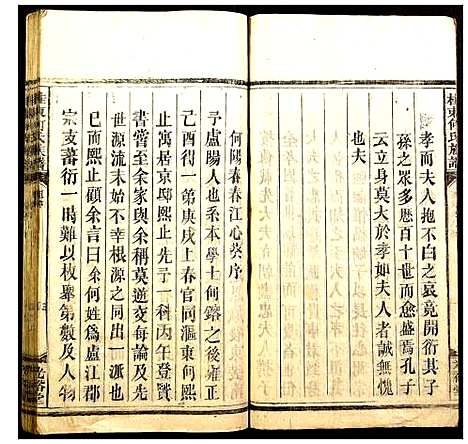 孝而夫人抱不白之哀竟開衍其子
孫之眾多愿百十世而愈盛焉孔子
云立身莫大於孝如夫人者誠無愧
也夫
何陽春春江心葵序
予盧陽人也本學士何鎔之後雍正
己酉得一第庚戌上春官同滙東何熙
止寓居京邸熙止先予一科丙午登賢
書誓至余家與余稱莫逆交每論及先
世源流未始不幸根源之同出一派也
一日而熙止顧余言曰余何姓為盧江郡
宗支蕃衍一時難以枚舉第數及人物
桂東何氏族譜